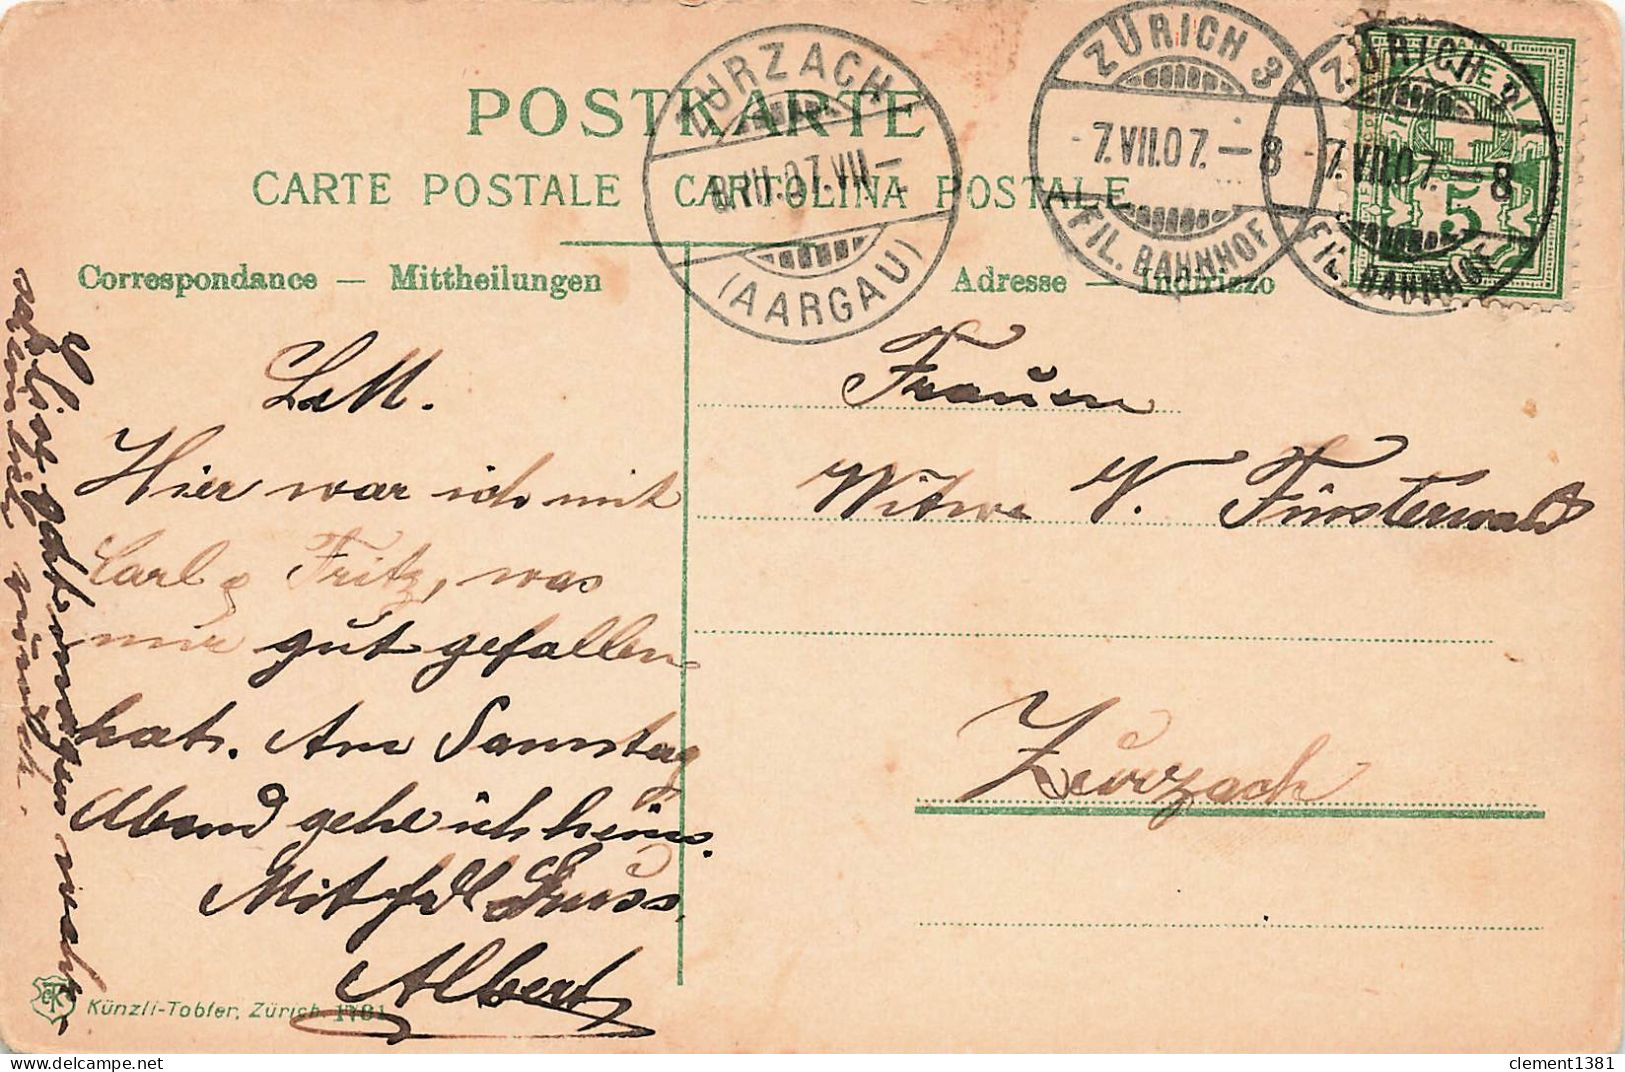 POSTKARTE
CARTE POSTALE CARTOLINA POSTALE
Correspondance — Mittheilungen
Adresse — Indirizzo
ZURZACH
8.VII.07.VII–
(AARGAU)
ZÜRICH 3
-7.VII.07.–8
FIL. BAHNHOF
ZÜRICH 3
-7.VII.07.–8
FIL. BAHNHOF
5
L. M.
Hier war ich mit
Carl & Fritz, was
mir gut gefallen
hat. Am Samstag
Abend gehe ich heim.
Mit frdl Gruss.
Albert
Frauen
Witwe V. Fürsterwald
Zurzach
Künzli-Tobler, Zürich 1701
clement1381